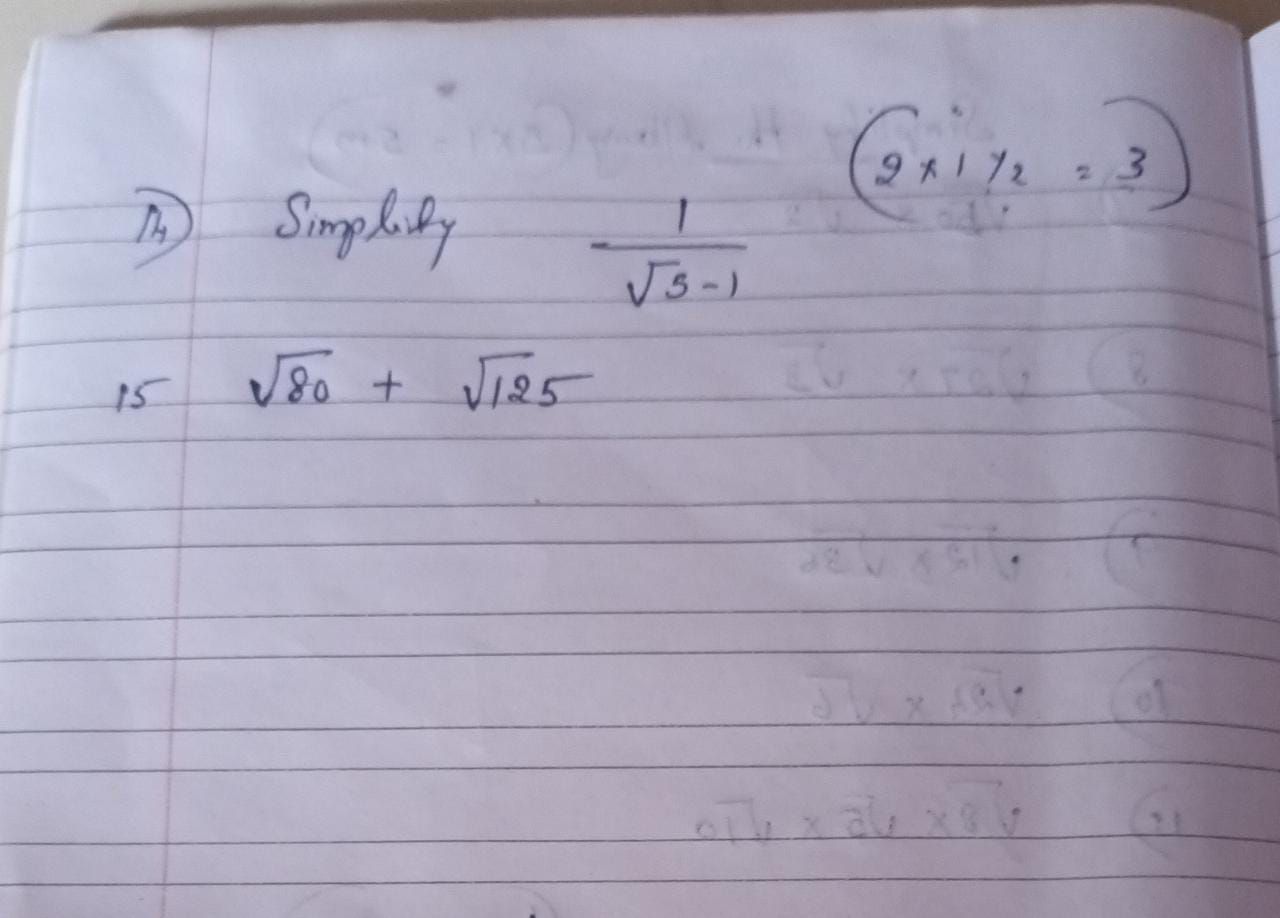 (2 x 1 ½ = 3)
14) Simplify 1/(√5-1)
15 √80 + √125